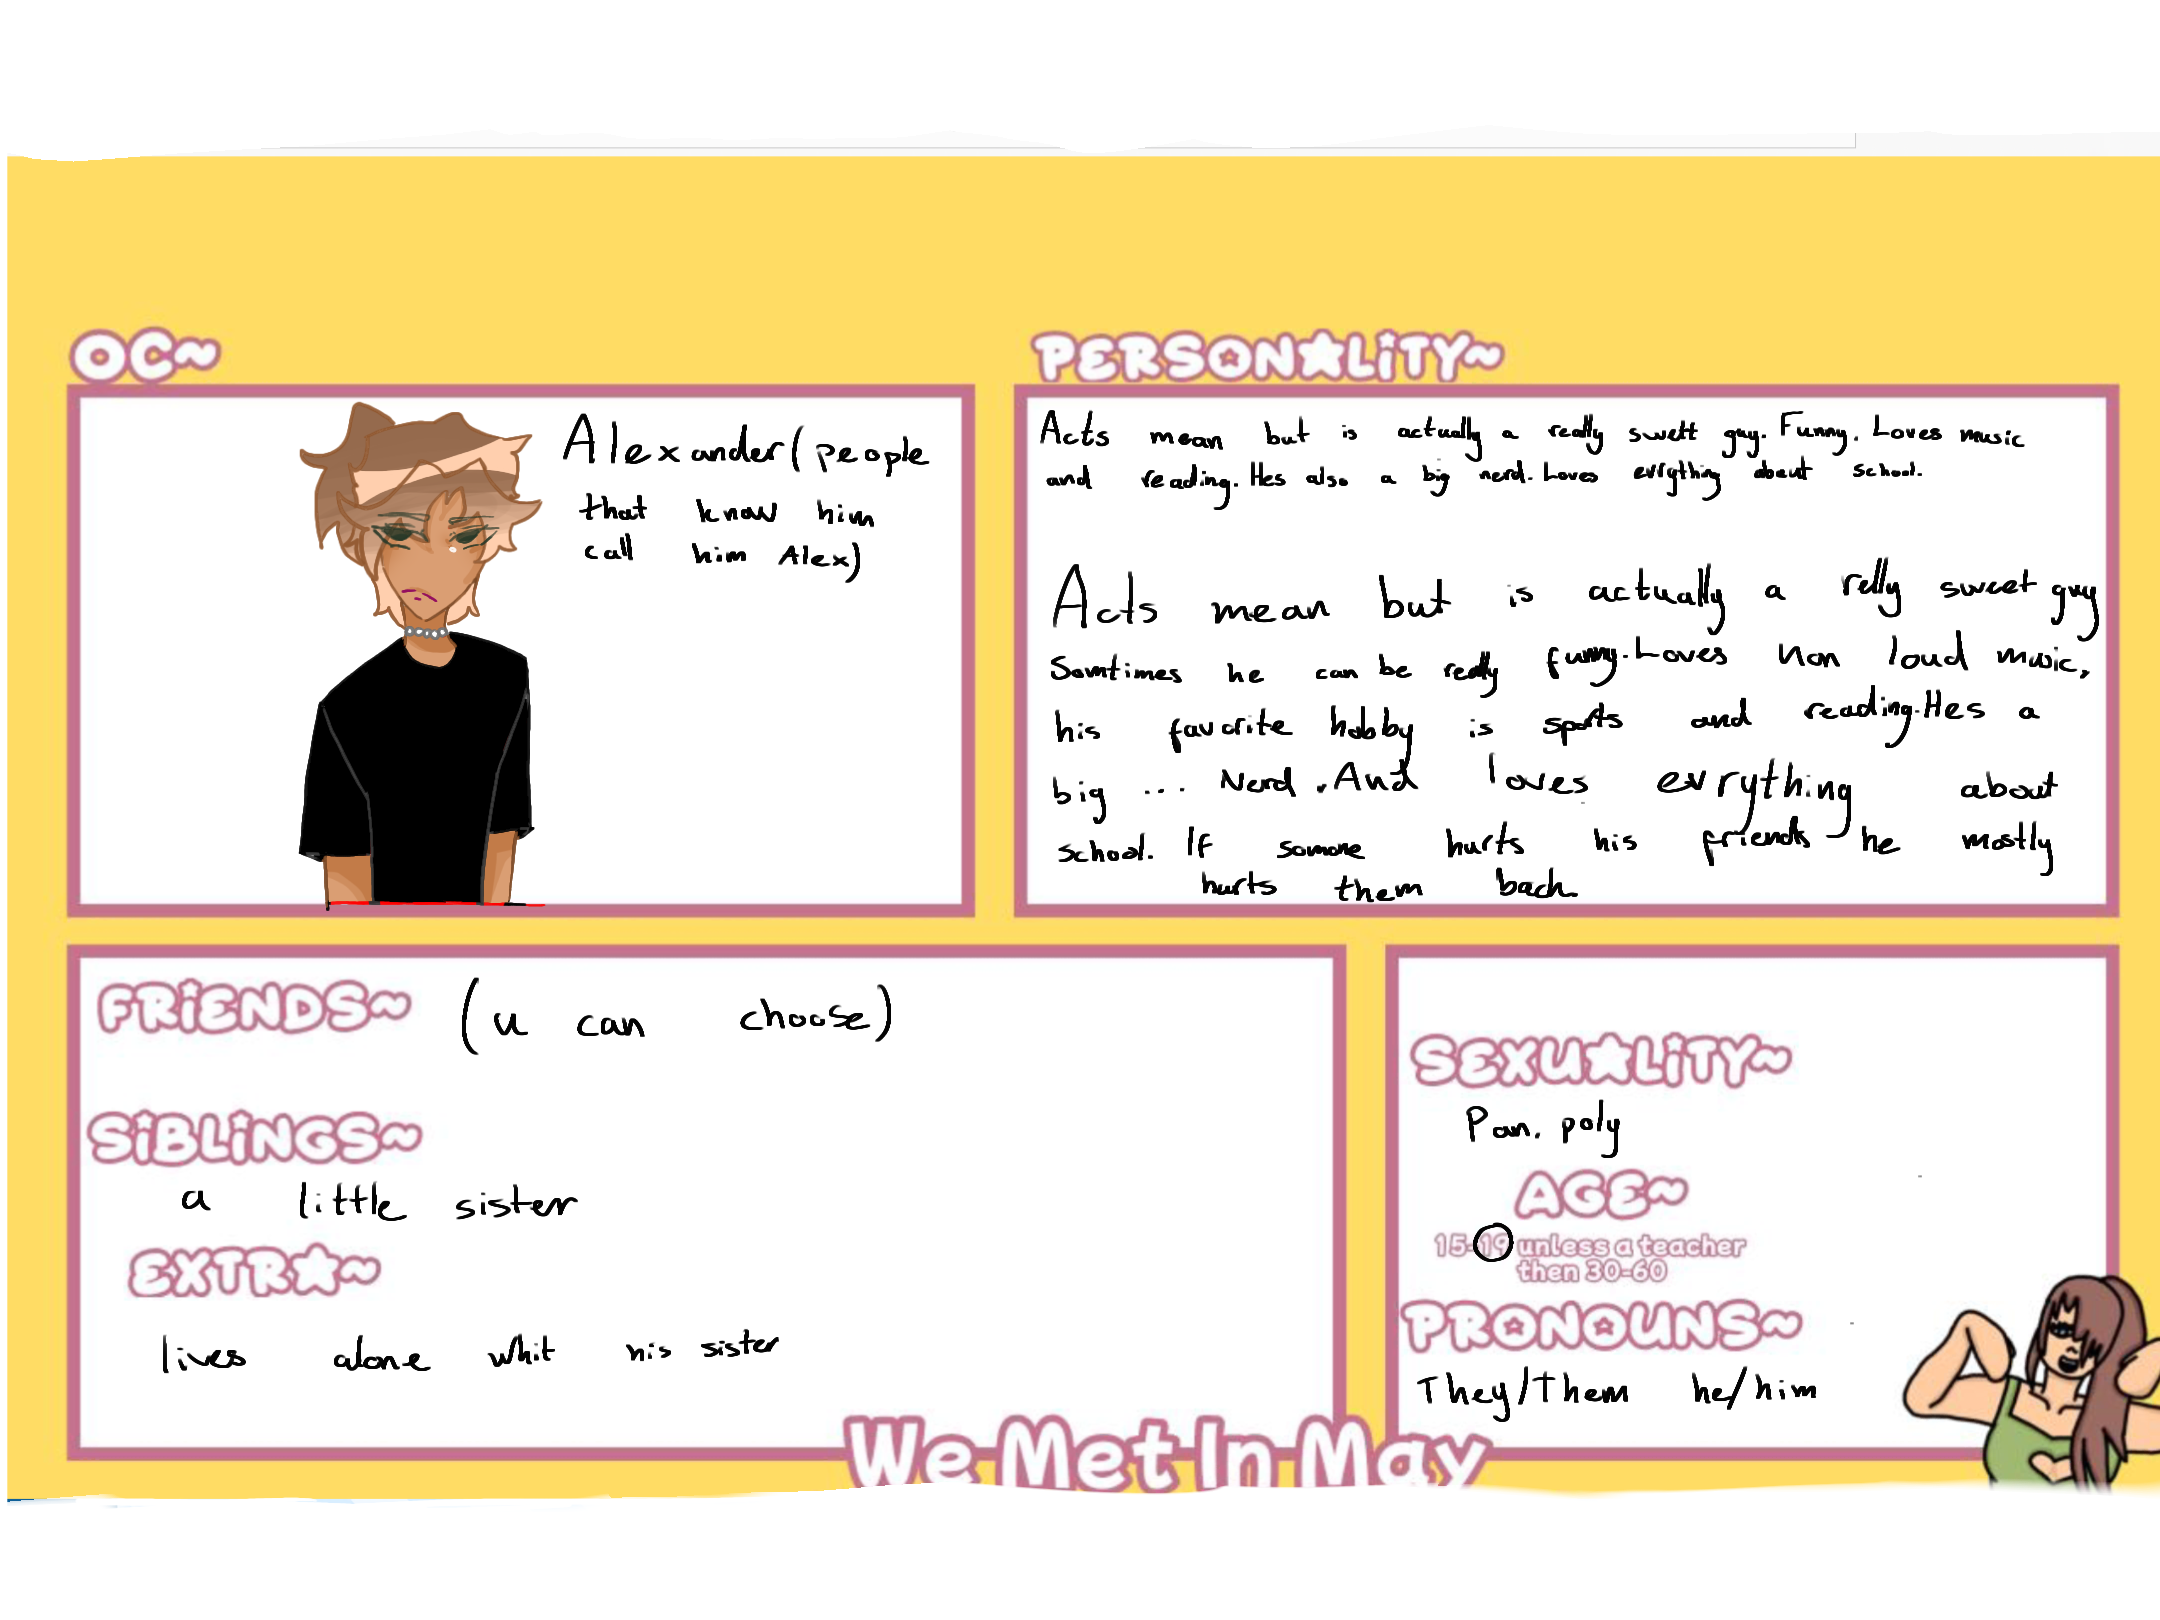 OC~
Alexander(people
that know him
call him Alex)
PERSONALITY~
Acts mean but is actually a really swett guy. Funny. Loves music
and reading. Hes also a big nerd. Loves evrything about school.
Acts mean but is actually a relly sweet guy
Somtimes he can be really funny. Loves non loud music,
his favorite hobby is sports and reading. Hes a
big ... Nerd. And loves evrything about
school. If somone hurts his friends he mostly
hurts them back
FRIENDS~ (u can choose)
SIBLINGS~
a little sister
EXTRA~
lives alone whit his sister
SEXUALITY~
Pan. poly
AGE~
15-19 unless a teacher
then 30-60
PRONOUNS~
They/Them he/him
We Met In May